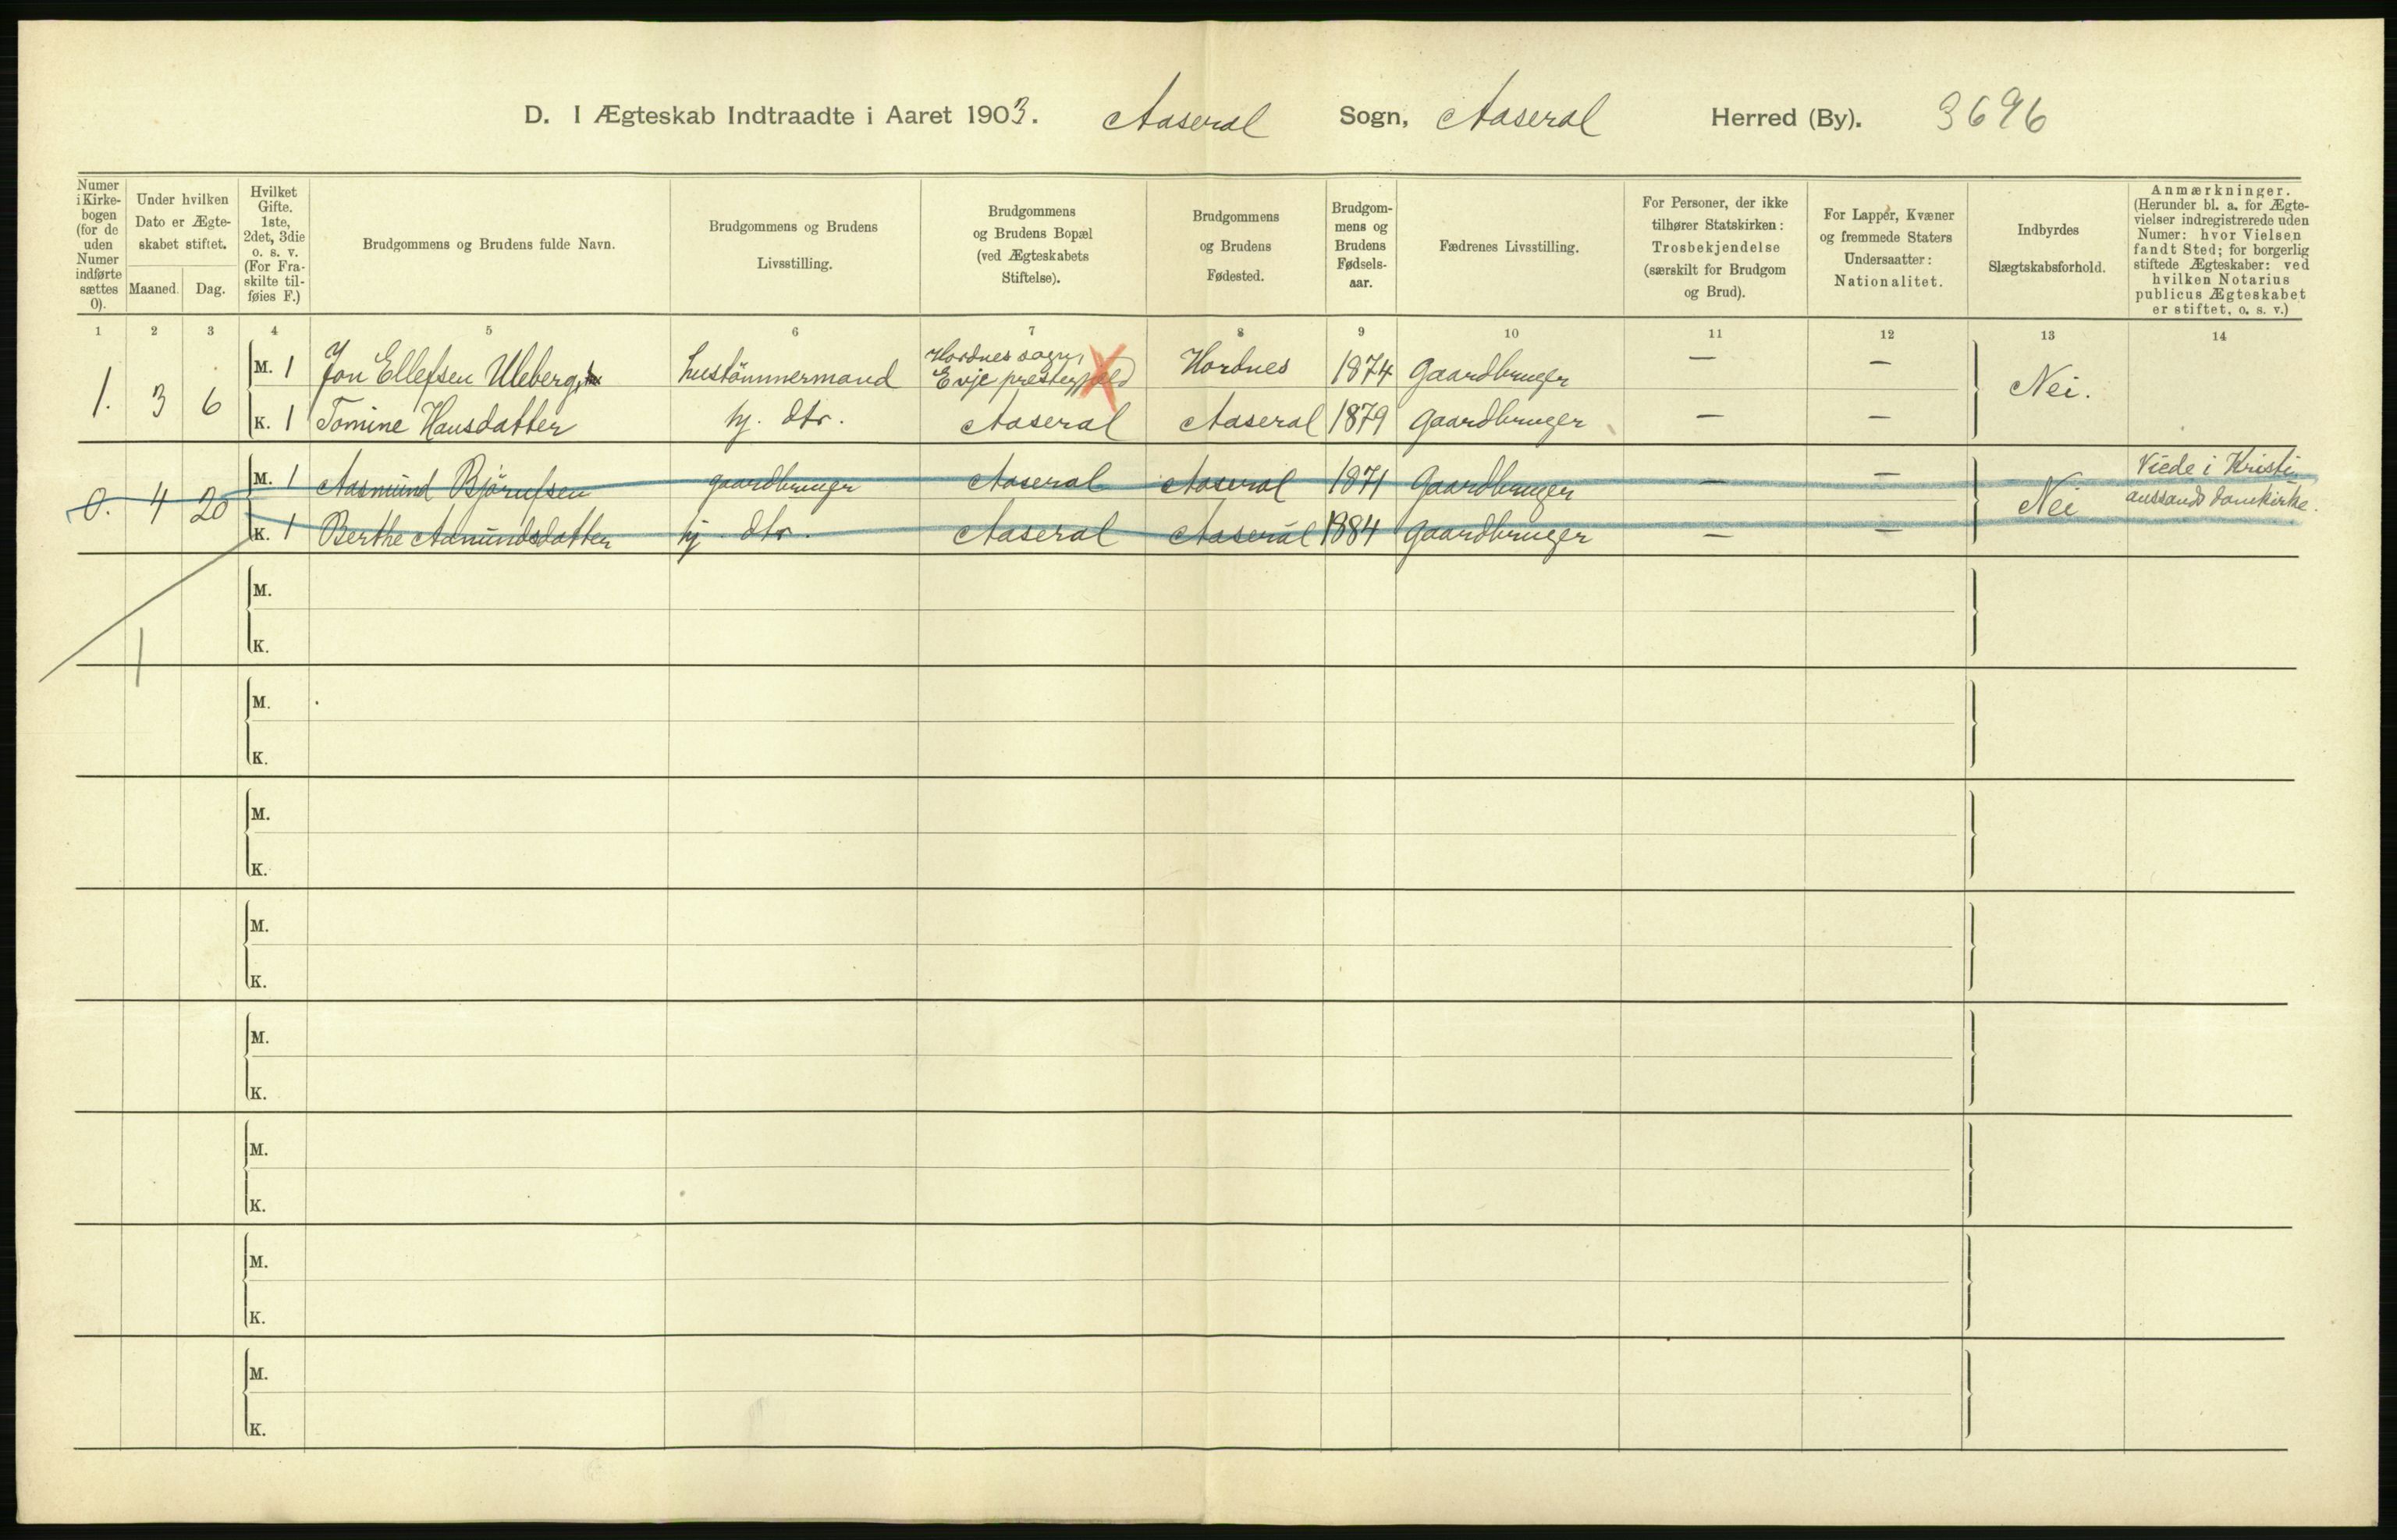 D. I Ægteskab Indtraadte i Aaret 1903. Aaseral Sogn, Aaseral Herred (By). 3696
Numer i Kirke-bogen (for de uden Numer indførte sættes 0).
Under hvilken Dato er Ægte-skabet stiftet.
Maaned. Dag.
Hvilket Gifte. 1ste, 2det, 3die o. s. v. (For Fra-skilte til-føies F.)
Brudgommens og Brudens fulde Navn.
Brudgommens og Brudens Livsstilling.
Brudgommens og Brudens Bopæl (ved Ægteskabets Stiftelse).
Brudgommens og Brudens Fødested.
Brudgom-mens og Brudens Fødsels-aar.
Fædrenes Livsstilling.
For Personer, der ikke tilhører Statskirken: Trosbekjendelse (særskilt for Brudgom og Brud).
For Lapper, Kvæner og fremmede Staters Undersaatter: Nationalitet.
Indbyrdes Slægtskabsforhold.
Anmærkninger. (Herunder bl. a. for Ægte-vielser indregistrerede uden Numer: hvor Vielsen fandt Sted; for borgerlig stiftede Ægteskaber: ved hvilken Notarius publicus Ægteskabet er stiftet, o. s. v.)
1 2 3 4 5 6 7 8 9 10 11 12 13 14
1. 3 6 M. 1 Jon Ellefsen Uleberg, hustömmermand Hordnes sogn, Evje prestegjæld Hordnes 1874 Gaardbruger — — Nei.
K. 1 Tomine Hansdatter hj. dtr. Aaseral Aaseral 1879 Gaardbruger — —
0. 4 20 M. 1 Aasmund Björnfsen gaardbruger Aaseral Aaseral 1871 Gaardbruger — — Nei Viede i Kristi
anssands domkirke.
K. 1 Berthe Aamundsdatter hj. dtr. Aaseral Aaseral 1884 Gaardbruger — —
M.
1
K.
M.
K.
M.
K.
M.
K.
M.
K.
M.
K.
M.
K.
M.
K.